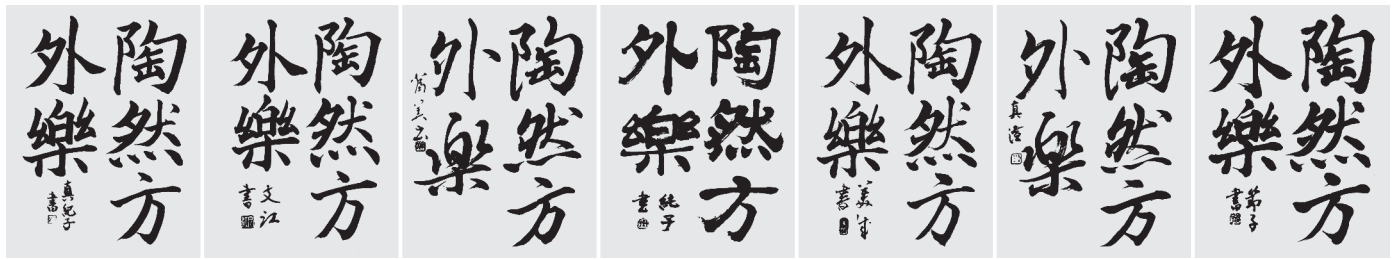 陶然方
外樂
真紀子
書
陶然方
外樂
文江
書
陶然方
外楽
陶然方
外樂
純子
書
陶然方
外樂
書
陶然方
外楽
真澄
陶然方
外樂
節子
書